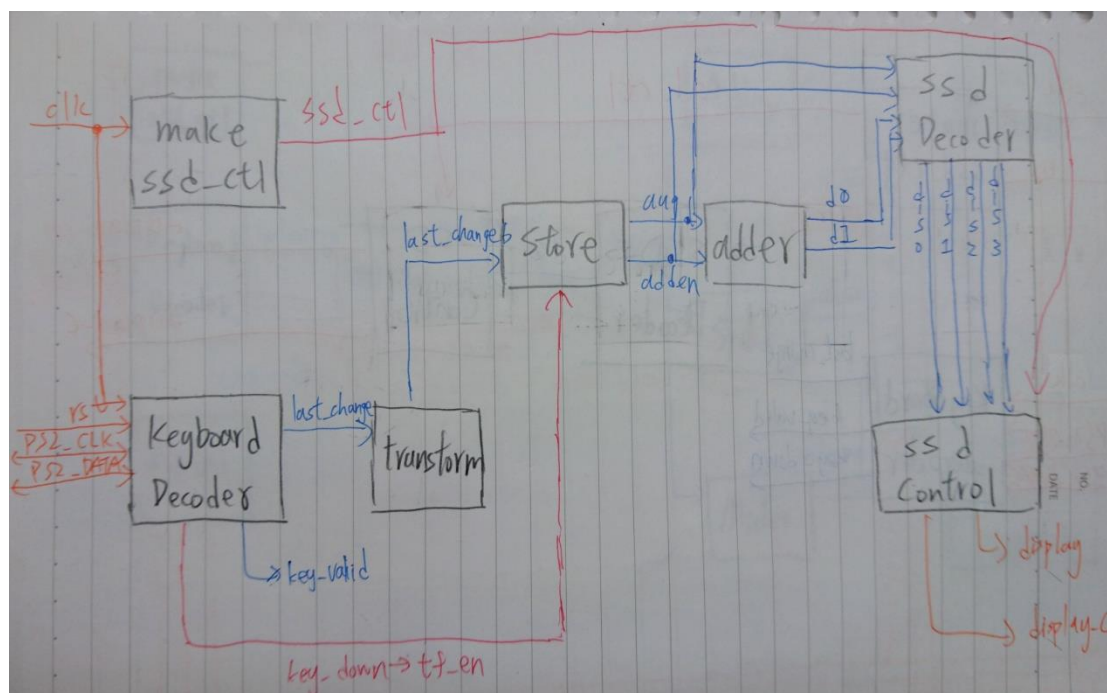 clk
make
ssd_ctl
ssd_ctl
ssd
Decoder
last_changeb
store
aug
adden
adder
d0
d1
d_ss0
d_ss1
d_ss2
d_ss3
rs
PS2_CLK
PS2_DATA
Keyboard
Decoder
last_change
transform
key_valid
key_down→tf_en
ssd
Control
NO.
DATE
display
display_c